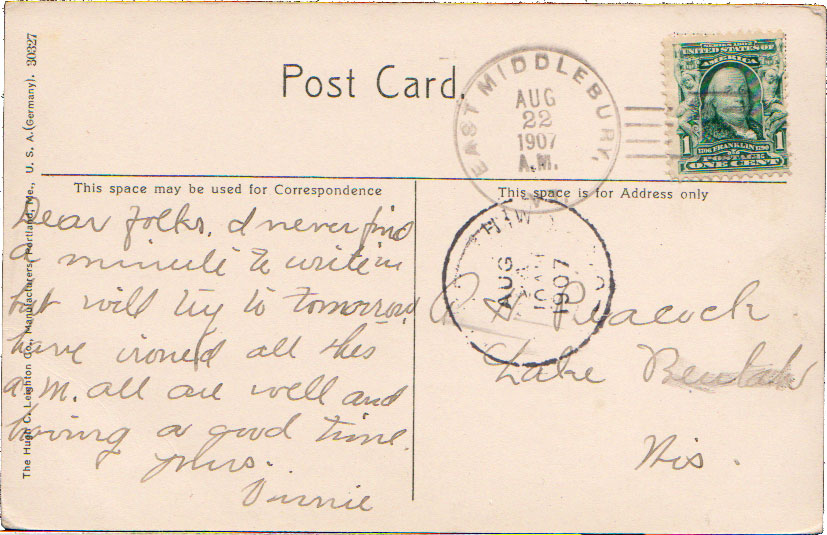 Post Card.
EAST MIDDLEBURY,
AUG
22
1907
A.M.
SERIES 1902
UNITED STATES OF
AMERICA
1 1
1706 FRANKLIN 1790
POSTAGE
ONE CENT
The Hugh C. Leighton Co., Manufacturers, Portland, Me., U. S. A. (Germany). 30327
This space may be used for Correspondence
Dear folks. I never find
a minute to write in
but will try to tomorrow
have ironed all this
a.m. all are well and
having a good time.
yours.
Vinnie
This space is for Address only
AUG
10AM
1907
Peacock
Lake Beulah
Wis.